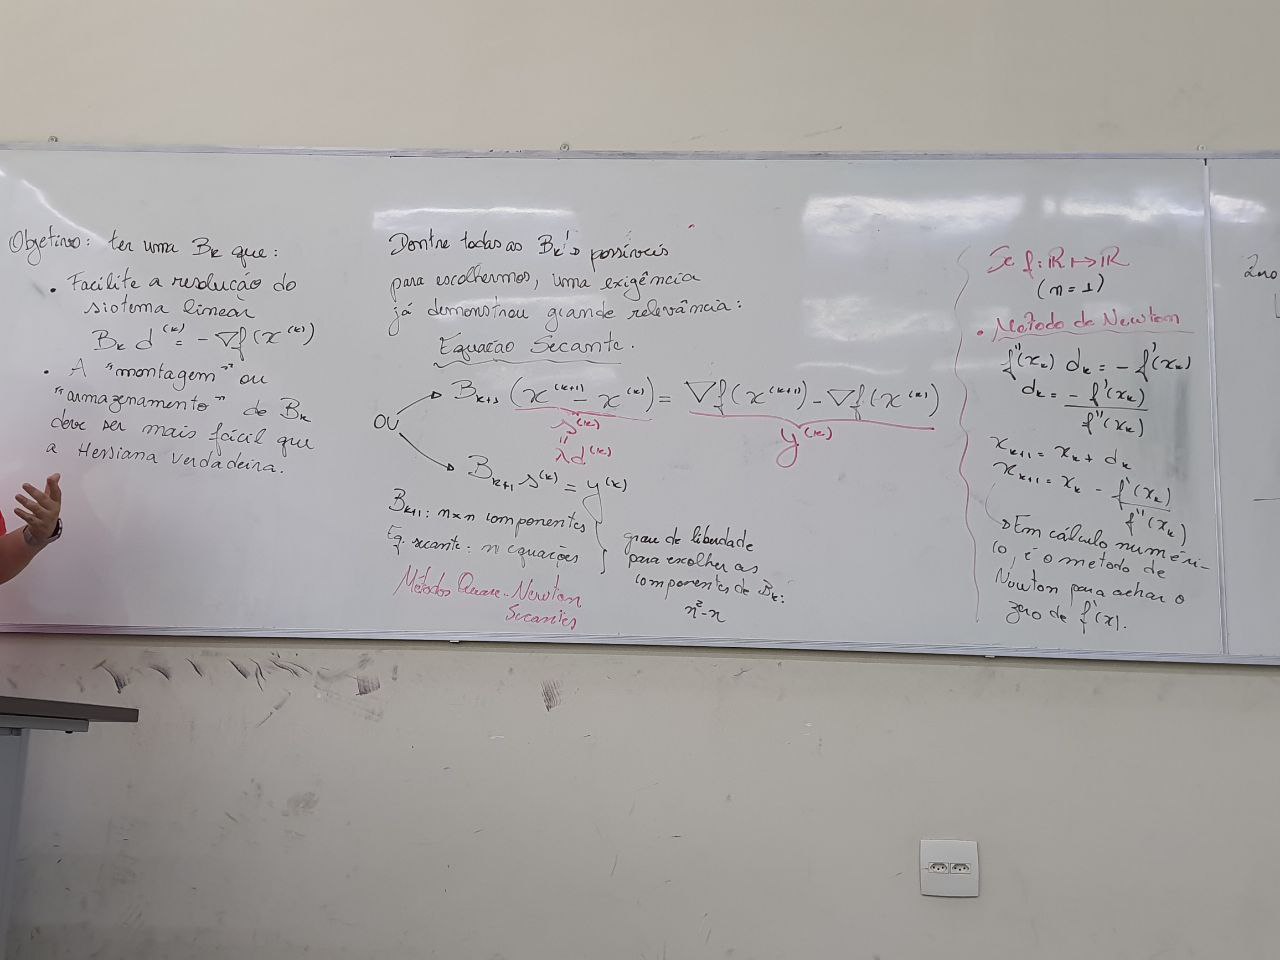 Objetivo: ter uma Bk que:
• Facilite a resolução do
sistema linear
Bk d^(k) = -∇f(x^(k))
• A "montagem" ou
"armazenamento" de Bk
deve ser mais fácil que
a Hessiana verdadeira.
Dentre todas as Bk's possíveis
para escolhermos, uma exigência
já demonstrou grande relevância:
Equação Secante.
Bk+1 (x^(k+1) - x^(k)) = ∇f(x^(k+1)) - ∇f(x^(k))
s^(k)
y^(k)
OU
"
λd^(k)
Bk+1 s^(k) = y^(k)
Bk+1: n×n componentes
Eq. secante: n equações
grau de liberdade
para escolher as
componentes de Bk:
n²-n
Métodos Quase-Newton
Secantes
Se f: ℝ ↦ ℝ
(n=1)
• Método de Newton
f''(xk) dk = -f'(xk)
dk = -f'(xk)
f''(xk)
xk+1 = xk + dk
xk+1 = xk - f'(xk)
f''(xk)
→ Em cálculo numéri-
co, é o método de
Newton para achar o
zero de f'(x).